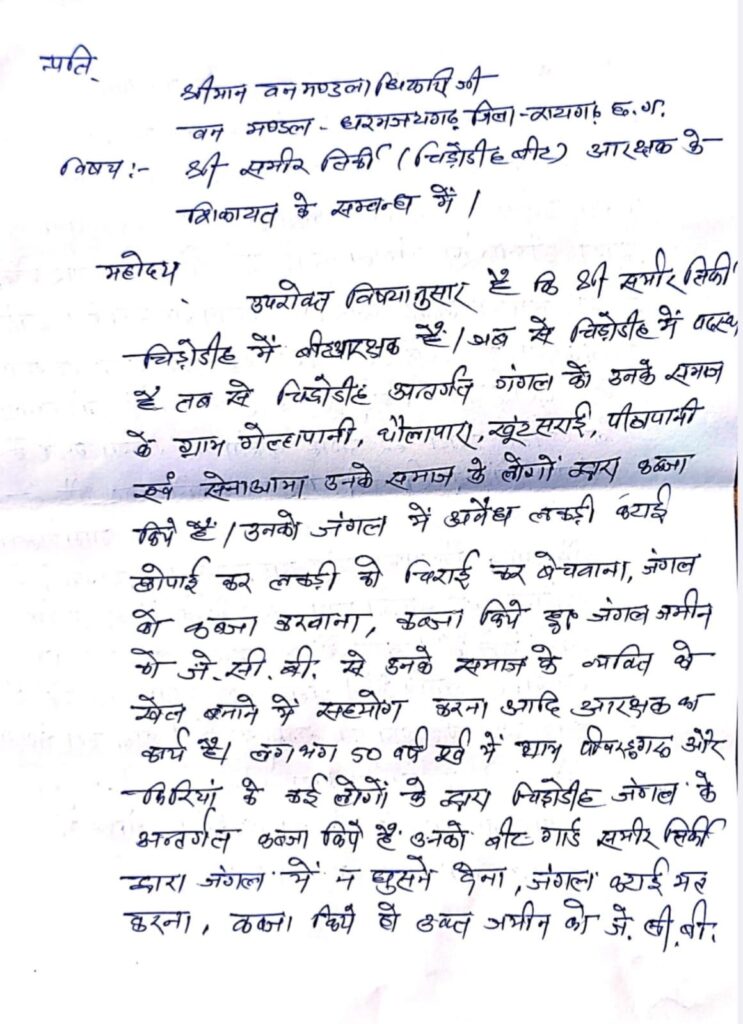 प्रति,
श्रीमान वन मण्डलाधिकारी जी
वन मण्डल - धरमजयगढ़ जिला - रायगढ़ छ.ग.
विषय :- श्री समीर तिर्की (चिड़ोडीह बीट) आरक्षक के
शिकायत के सम्बन्ध में।
महोदय,
उपरोक्त विषयानुसार है कि श्री समीर तिर्की
चिड़ोडीह में बीटआरक्षक है। जब से चिड़ोडीह में पदस्थ
है तब से चिड़ोडीह अन्तर्गत जंगल को उनके समाज
के ग्राम गोल्हापानी, धौलापारा, खूंटसराई, पीठापानी
एवं सेनाआमा उनके समाज के लोगों द्वारा कब्जा
किये हैं। उनको जंगल में अवैध लकड़ी कटाई
छोपाई कर लकड़ी को चिराई कर बेचवाना, जंगल
को कब्जा करवाना, कब्जा किये हुए जंगल जमीन
को जे.सी.बी. से उनके समाज के व्यक्ति को
खेत बनाने में सहयोग करना आदि आरक्षक का
कार्य है। लगभग 50 वर्ष पूर्व में ग्राम और
के कई लोगों के द्वारा चिड़ोडीह जंगल के
अन्तर्गत कब्जा किये हैं उनको बीट गार्ड समीर तिर्की
द्वारा जंगल में न घुसने देना, जंगल कटाई मत
करना, कब्जा किये हो उक्त जमीन को जे.सी.बी.